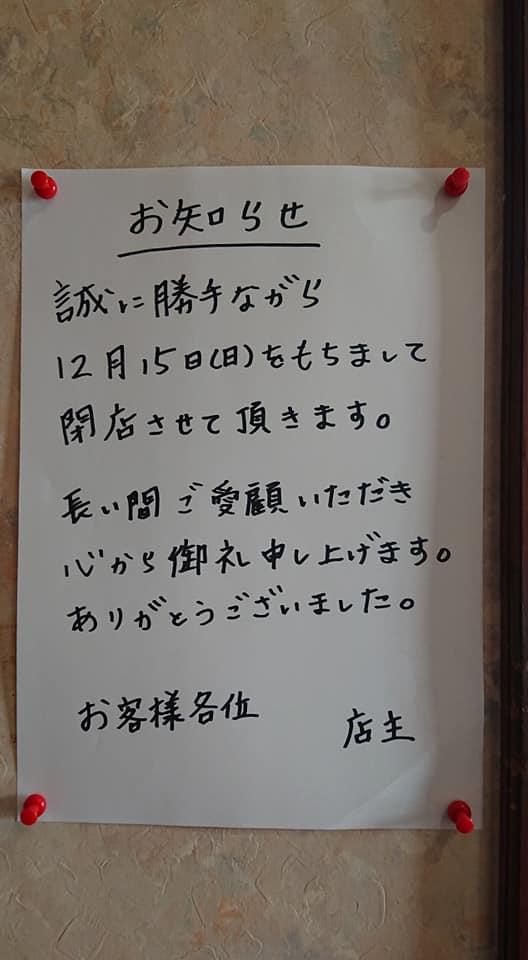 お知らせ
誠に勝手ながら
12月15日(日)をもちまして
閉店させて頂きます。
長い間ご愛顧いただき
心から御礼申し上げます。
ありがとうございました。
お客様各位
店主